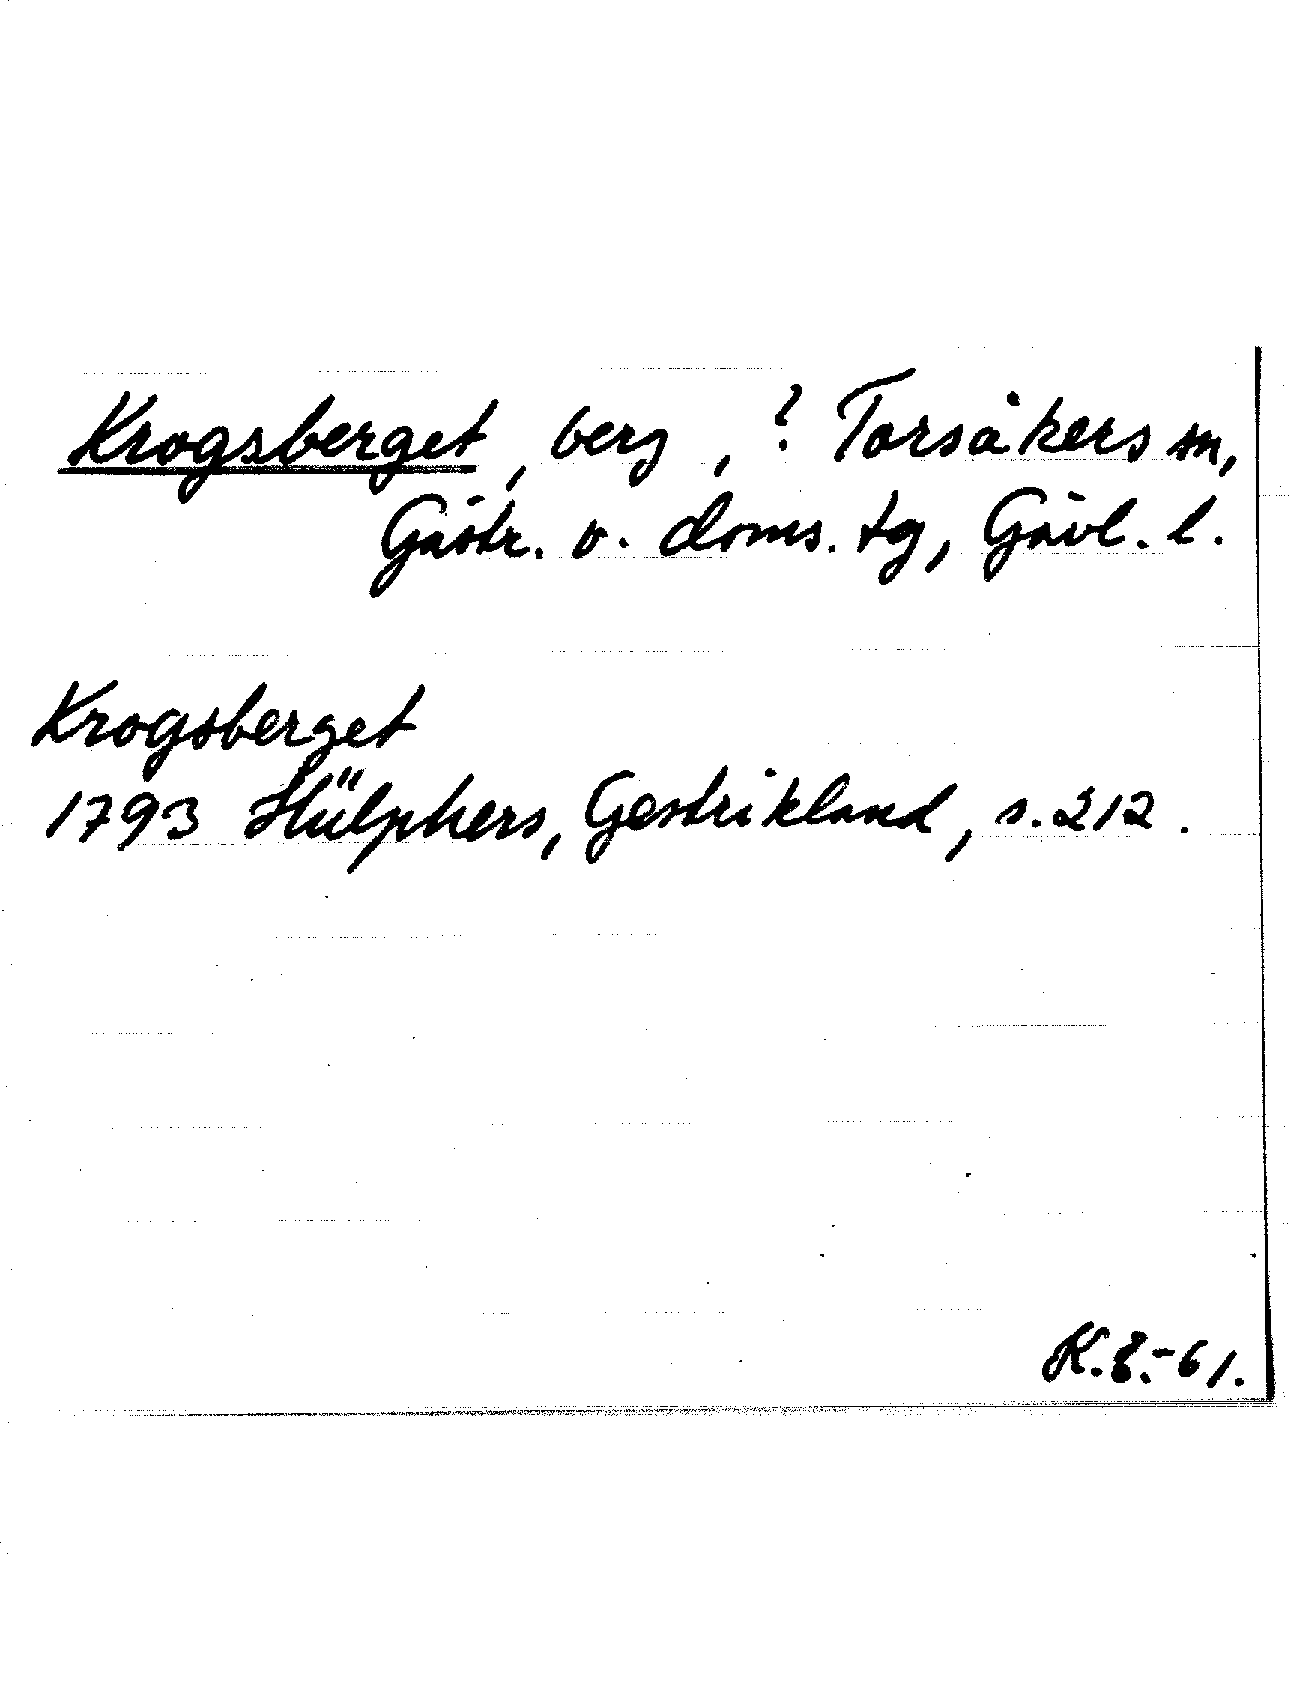 Krogsberget, berg, ? Torsåkers sn,
Gästr. v. doms. tg, Gävl. l.
Krogsberget
1793 Hülphers, Gestrikland, s. 212.
K.8.-61.